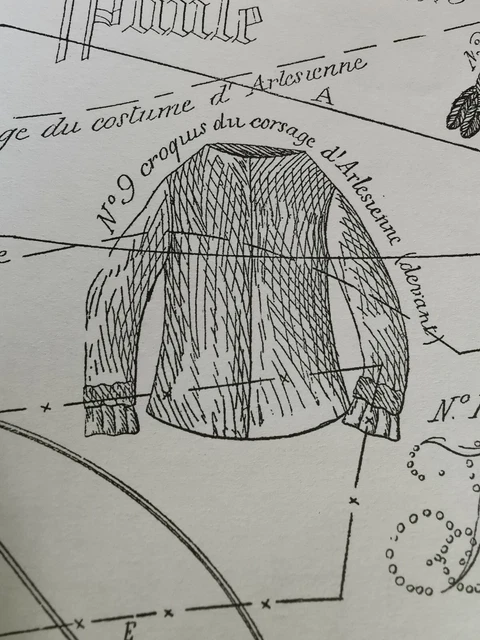 ge du costume d'Arlesienne
A
N°9 croquis du corsage d'Arlesienne (devant)
e
N°1
E